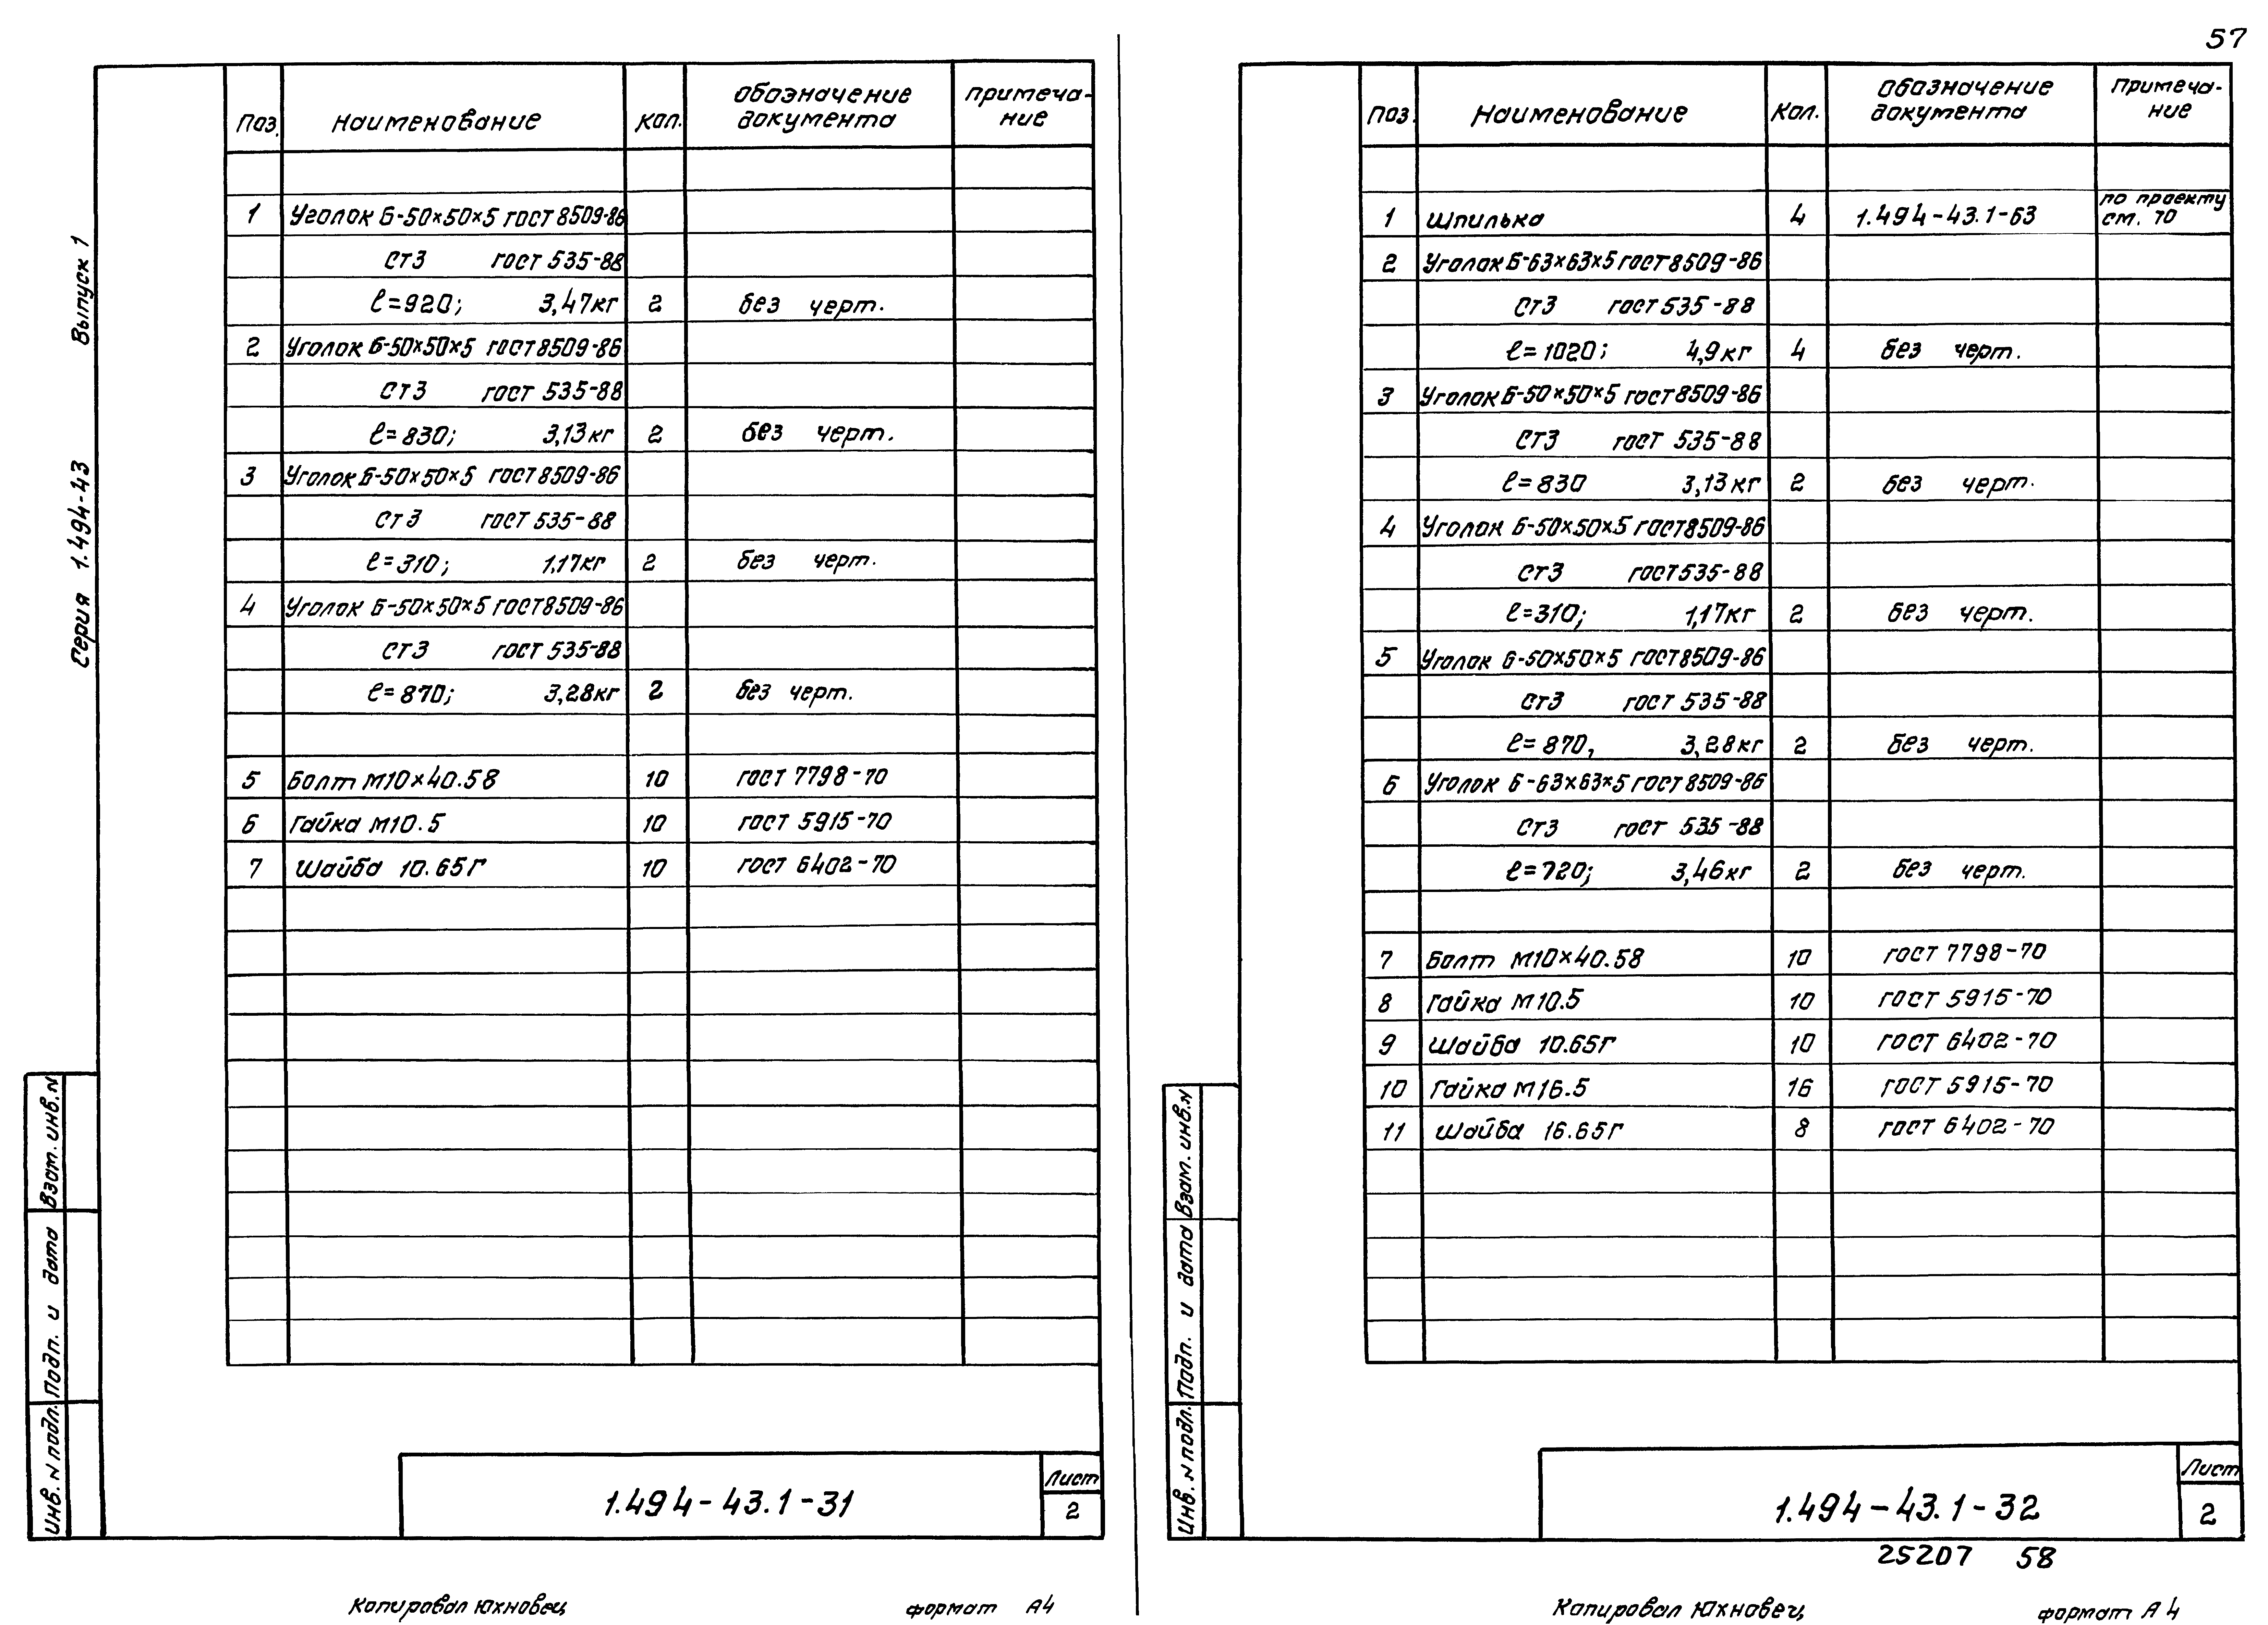 57
Серия 1.494-43 Выпуск 1
Поз. Наименование Кол. Обозначение документа Примеча-ние
1 Уголок Б-50×50×5 ГОСТ 8509-86
Ст3 ГОСТ 535-88
ℓ=920; 3,47кг 2 без черт.
2 Уголок Б-50×50×5 ГОСТ 8509-86
Ст3 ГОСТ 535-88
ℓ=830; 3,13кг 2 без черт.
3 Уголок Б-50×50×5 ГОСТ 8509-86
Ст3 ГОСТ 535-88
ℓ=310; 1,17кг 2 без черт.
4 Уголок Б-50×50×5 ГОСТ 8509-86
Ст3 ГОСТ 535-88
ℓ=870; 3,28кг 2 без черт.
5 Болт М10×40.58 10 ГОСТ 7798-70
6 Гайка М10.5 10 ГОСТ 5915-70
7 Шайба 10.65Г 10 ГОСТ 6402-70
Инв. N подл. Подп. и дата Взам. инв. N
1.494-43.1-31
Лист
2
Копировал Юхновец формат А4
Поз. Наименование Кол. Обозначение документа Примеча-ние
1 Шпилька 4 1.494-43.1-63 по проекту см. 70
2 Уголок Б-63×63×5 ГОСТ 8509-86
Ст3 ГОСТ 535-88
ℓ=1020; 4,9кг 4 без черт.
3 Уголок Б-50×50×5 ГОСТ 8509-86
Ст3 ГОСТ 535-88
ℓ=830 3,13кг 2 без черт.
4 Уголок Б-50×50×5 ГОСТ 8509-86
Ст3 ГОСТ 535-88
ℓ=310; 1,17кг 2 без черт.
5 Уголок Б-50×50×5 ГОСТ 8509-86
Ст3 ГОСТ 535-88
ℓ=870, 3,28кг 2 без черт.
6 Уголок Б-63×63×5 ГОСТ 8509-86
Ст3 ГОСТ 535-88
ℓ=720; 3,46кг 2 без черт.
7 Болт М10×40.58 10 ГОСТ 7798-70
8 Гайка М10.5 10 ГОСТ 5915-70
9 Шайба 10.65Г 10 ГОСТ 6402-70
10 Гайка М16.5 16 ГОСТ 5915-70
11 Шайба 16.65Г 8 ГОСТ 6402-70
Инв. N подл. Подп. и дата Взам. инв. N
1.494-43.1-32
Лист
2
25207 58
Копировал Юхновец формат А4